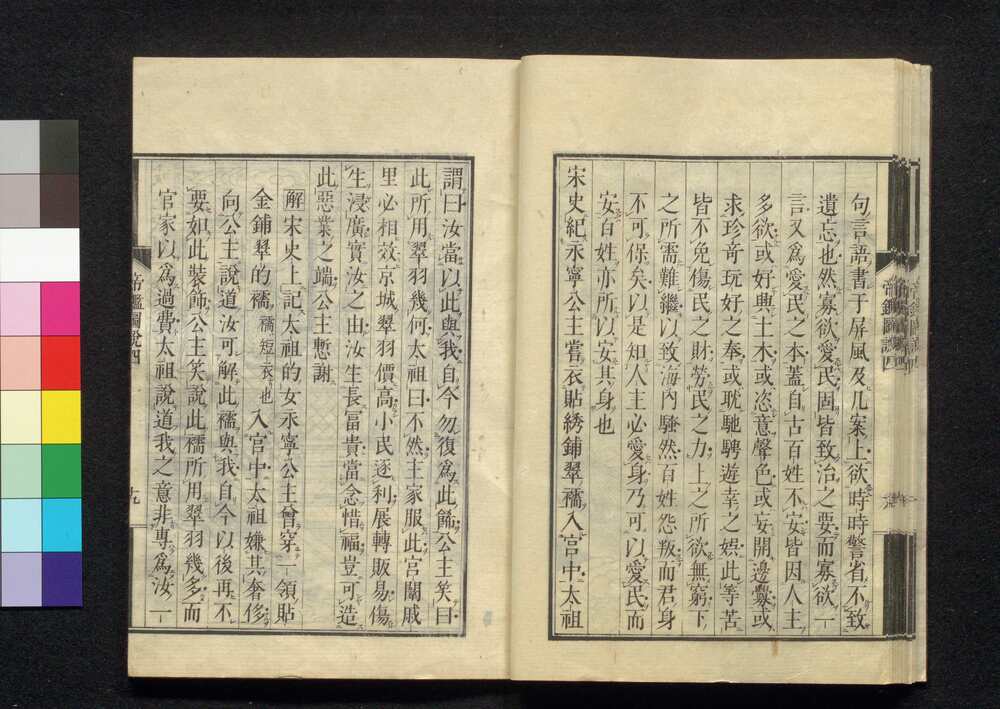 句言語書于屏風及几案上欲時時警省不致
遺忘也然寡欲愛民固皆致治之要而寡欲一
言又為愛民之本蓋自古百姓不安皆因人主
多欲或好興土木或恣意聲色或妄開邊釁或
求珍奇玩好之奉或耽馳騁遊幸之娯此等苦
皆不免傷民之財勞民之力上之所欲無窮下
之所需難繼以致海內騷然百姓怨叛而君身
不可保矣以是知人主必愛身乃可以愛民而
安百姓亦所以安其身也
宋史紀永寧公主嘗衣貼綉鋪翠襦入宮中太祖
謂曰汝當以此與我自今勿復為此餙公主笑曰
此所用翠羽幾何太祖曰不然主家服此宮闈戚
里必相效京城翠羽價高小民逐利展轉販易傷
生浸廣實汝之由汝生長冨貴當念惜福豈可造
此惡業之端公主慙謝
解宋史上記太祖的女永寧公主曾穿一領貼
金鋪翠的襦襦短衣也入宮中太祖嫌其奢侈
向公主說道汝可解此襦與我自今以後再不
要如此裝飾公主笑說此襦所用翠羽幾多而
官家以為過費太祖說道我之意非專為汝一
帝鑑圖說四
九